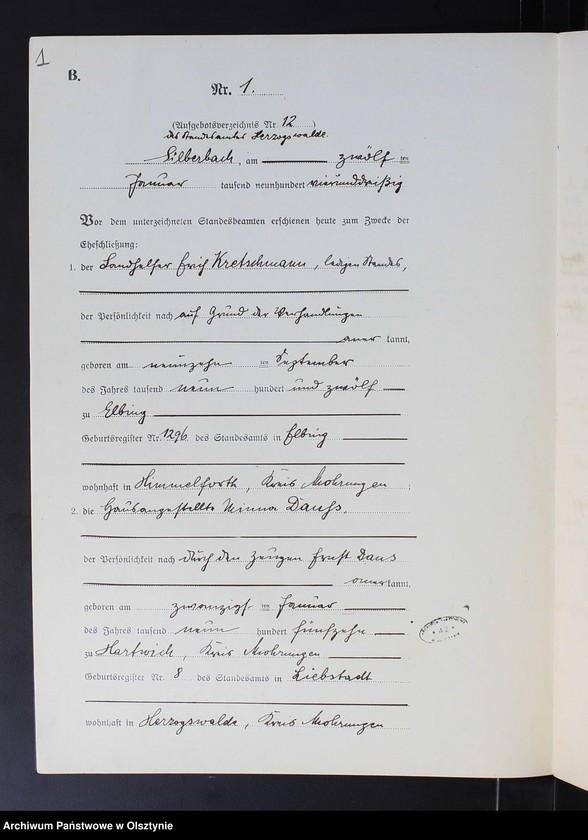 1
B.
Nr. 1.
(Aufgebotsverzeichnis Nr. 12)
des Standesamtes Herzogswalde.
Silberbach, am zwölf ten
Januar tausend neunhundert vierunddreißig
Vor dem unterzeichneten Standesbeamten erschienen heute zum Zwecke der
Eheschließung:
1. der Landhelfer Erich Kretschmann, ledigen Standes,
der Persönlichkeit nach auf Grund der Verhandlungen
aner kannt,
geboren am neunzehn ten September
des Jahres tausend neun hundert und zwölf
zu Elbing
Geburtsregister Nr. 1296 des Standesamts in Elbing
wohnhaft in Himmelforth, Kreis Mohrungen ;
2. die Hausangestellte Minna Dauß,
der Persönlichkeit nach durch den Zeugen Ernst Daus
aner kannt,
geboren am zwanzigst ten Januar
des Jahres tausend neun hundert fünfzehn
zu Hartwich, Kreis Mohrungen
Geburtsregister Nr. 8 des Standesamts in Liebstadt
wohnhaft in Herzogswalde, Kreis Mohrungen
Archiwum Państwowe w Olsztynie